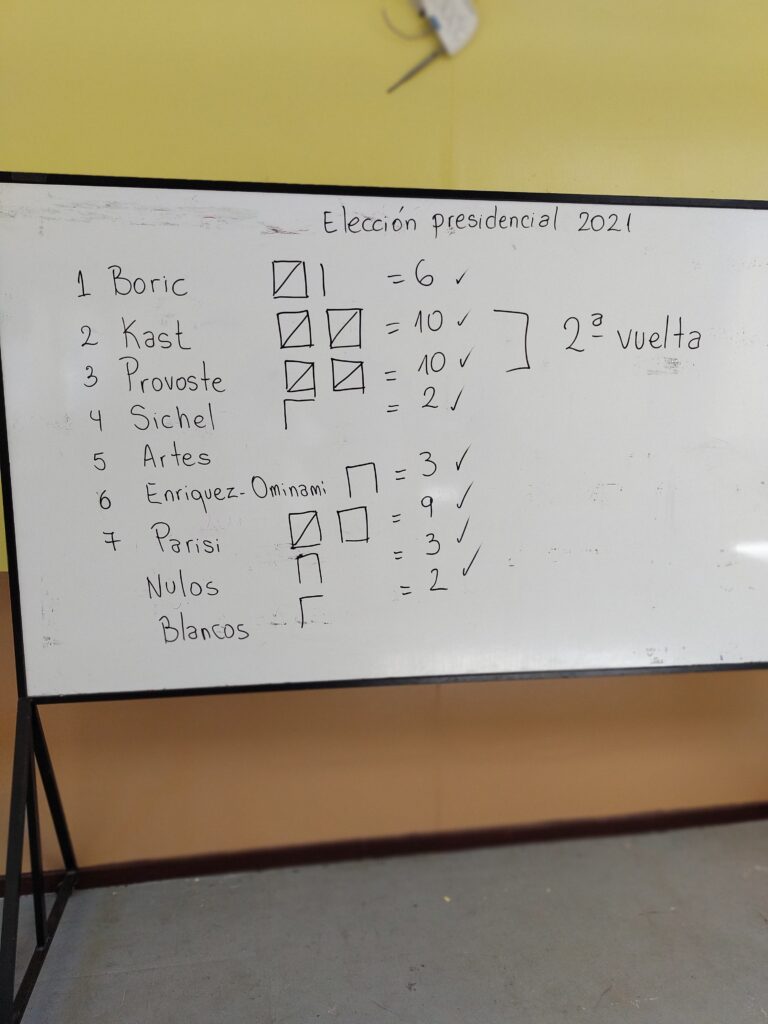 Elección presidencial 2021
1 Boric = 6 ✓
2 Kast = 10 ✓
3 Provoste = 10 ✓
2ª vuelta
4 Sichel = 2 ✓
5 Artes
6 Enriquez-Ominami = 3 ✓
7 Parisi = 9 ✓
Nulos = 3 ✓
Blancos = 2 ✓